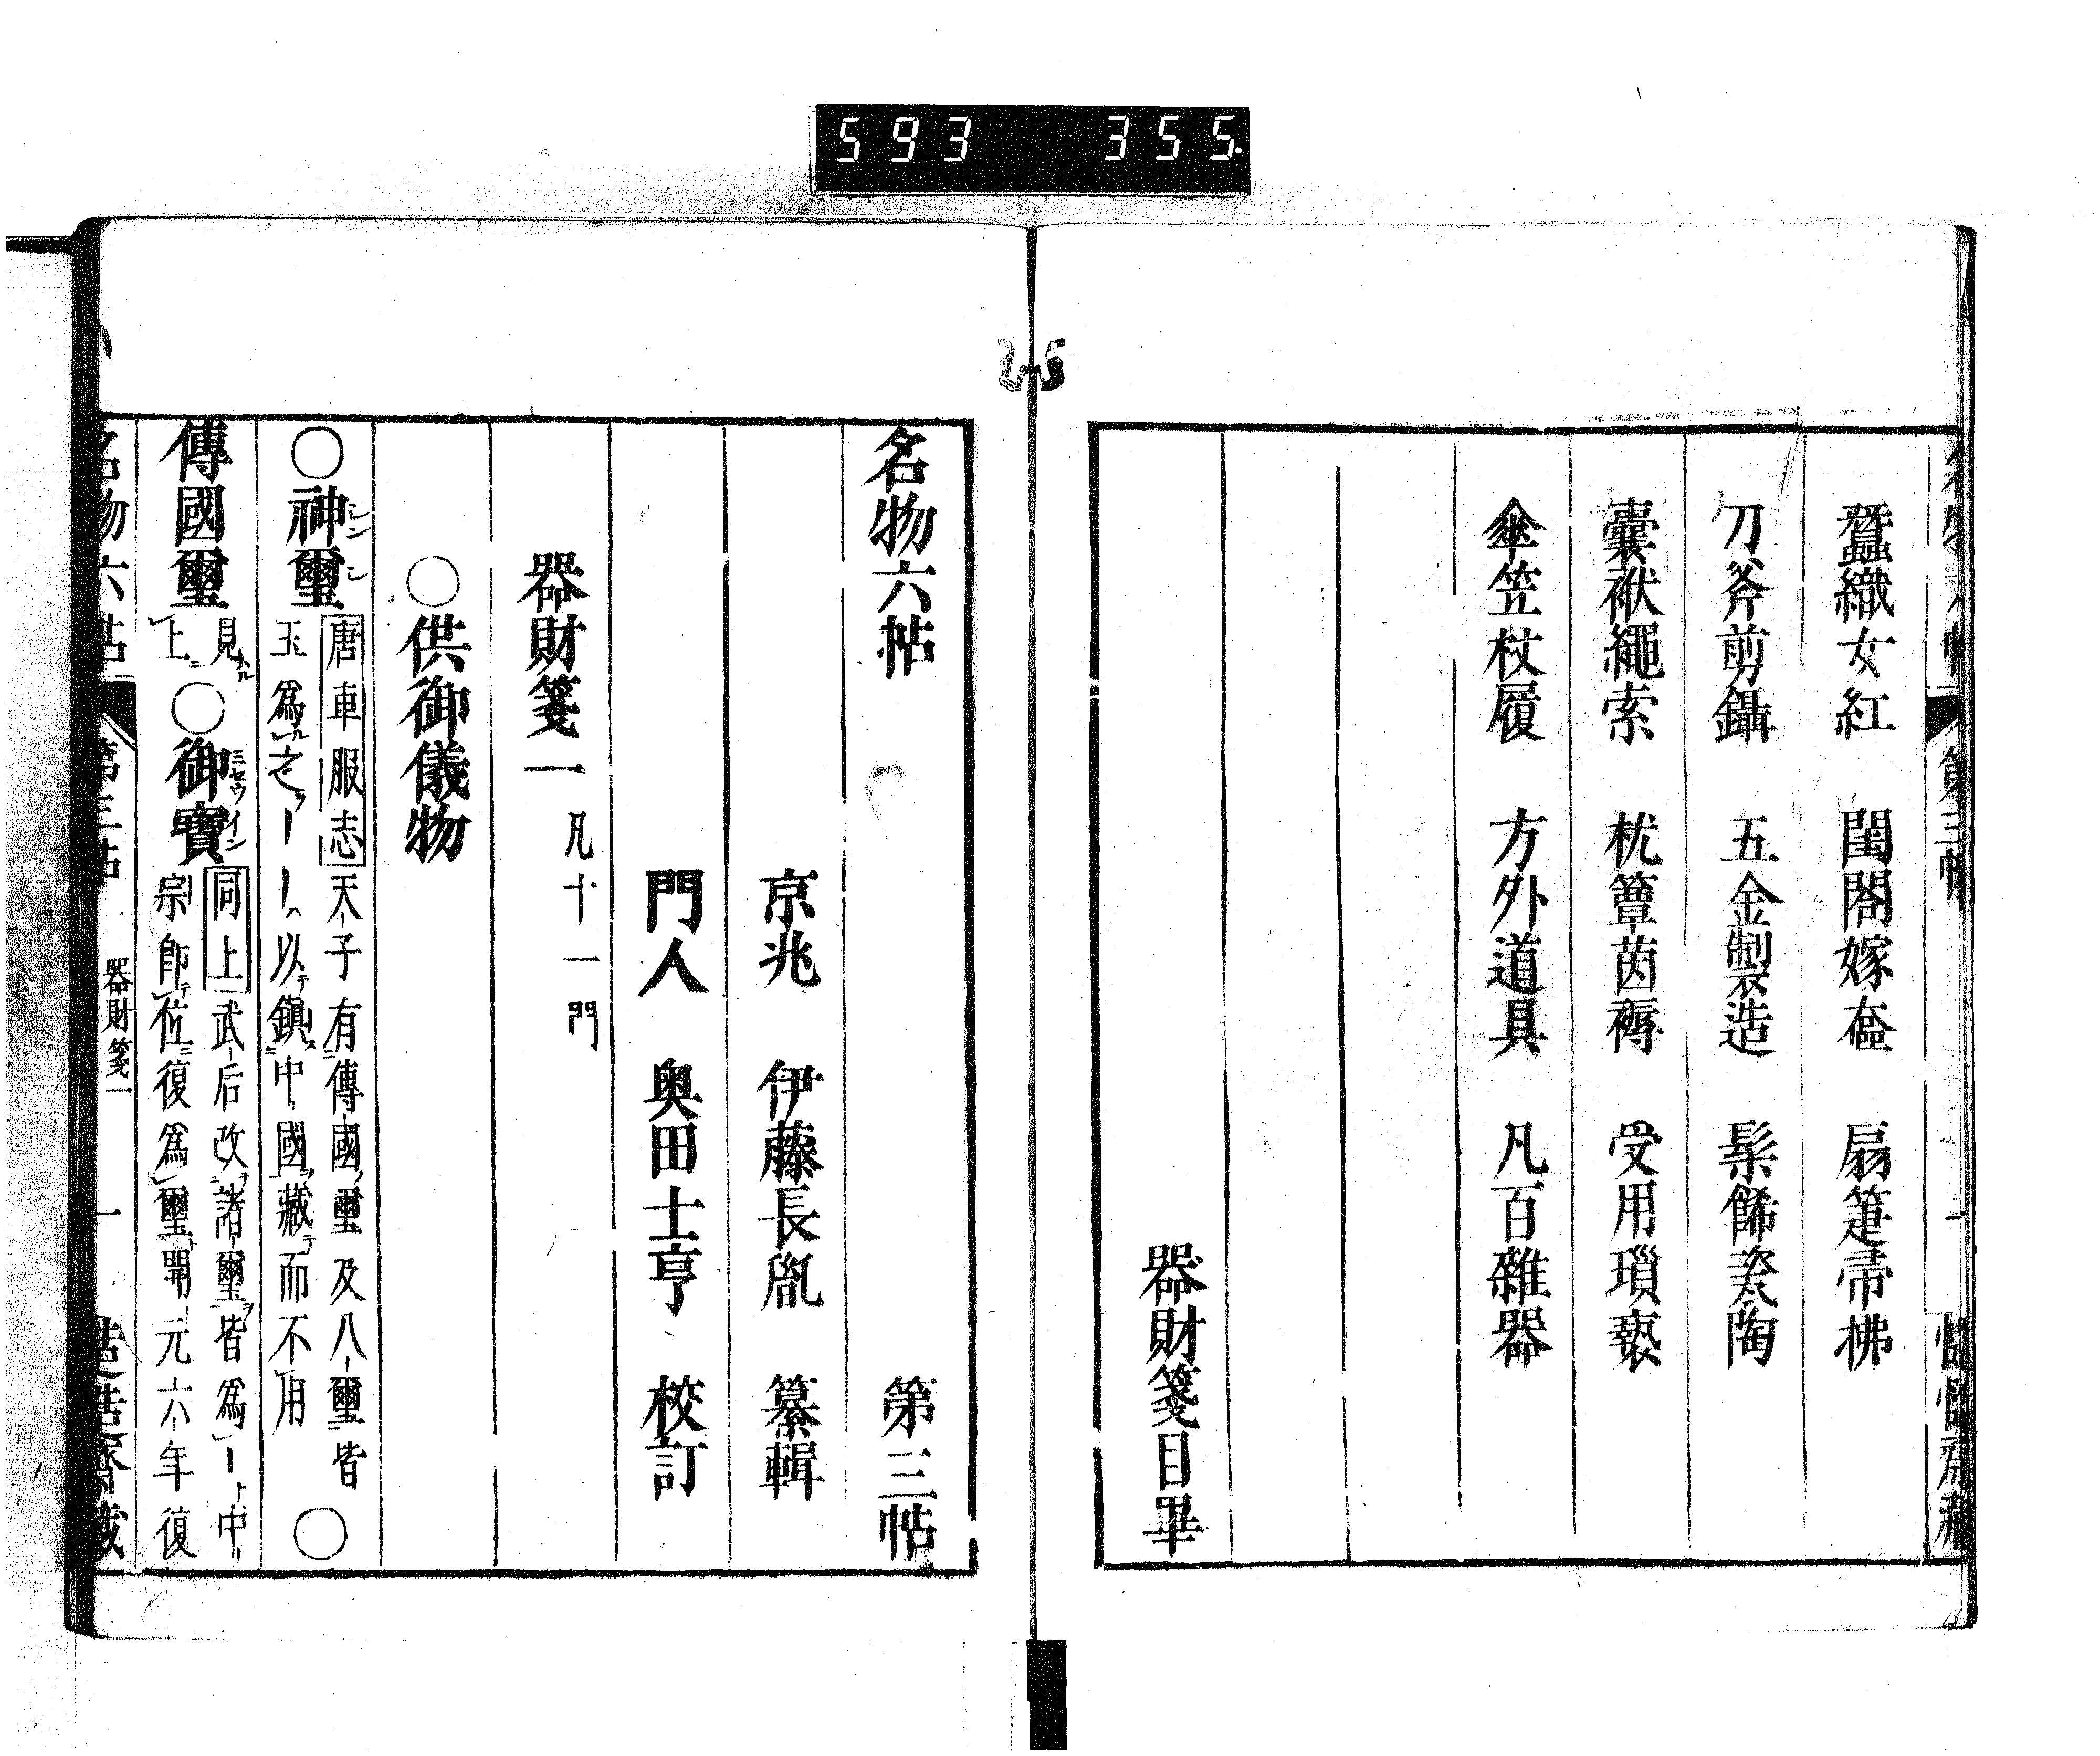 593 355.
蠶織女紅 閨閤嫁奩 扇箑帚拂
刀斧剪鑷 五金製造 髹餙瓷陶
囊袱繩索 枕簟茵褥 受用瑣褻
傘笠杖屨 方外道具 凡百雜器
器財箋目畢
名物六帖 第三帖
京兆 伊藤長胤 纂輯
門人 奥田士亨 校訂
器財箋一 凡十一門
〇供御儀物
〇神璽 唐車服志天子有傳國璽及八璽皆
玉爲之ーー以鎮中國藏而不用 〇
傳國璽 見上 〇御寶 同上武后改諸璽皆爲ー中
宗即位復爲璽開元六年復
名物六帖 第三帖 器財箋一 一